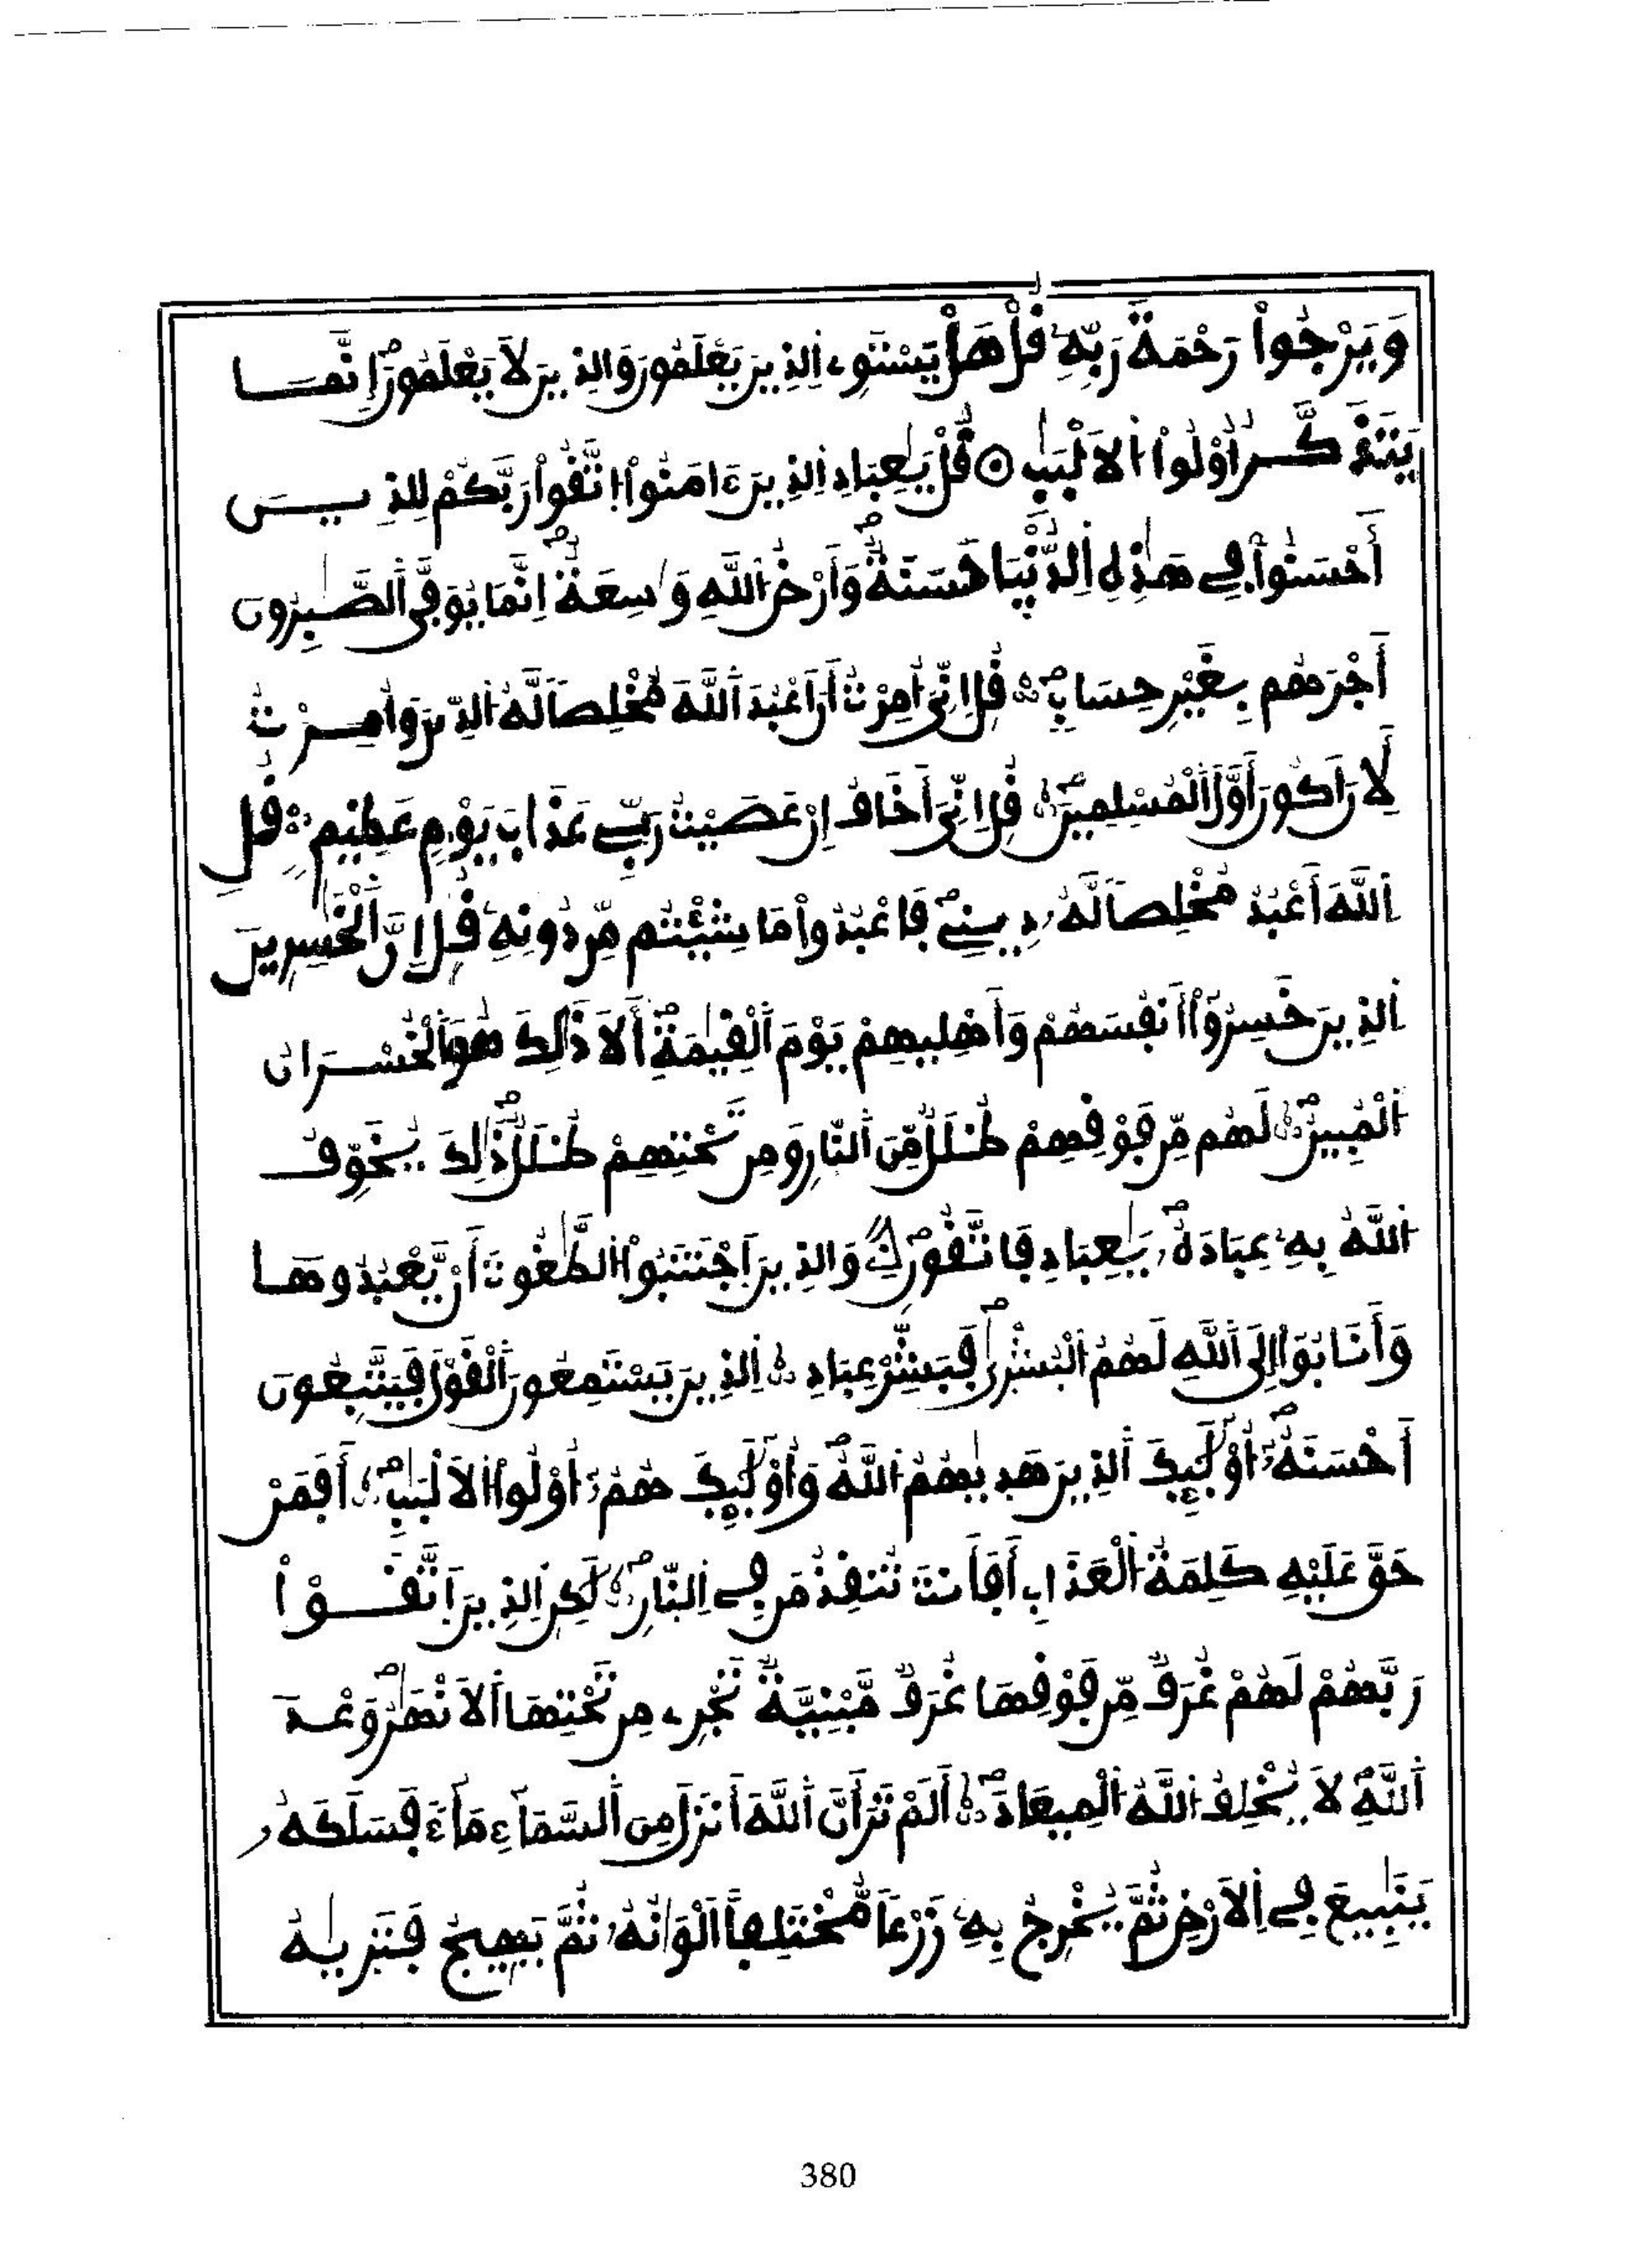 وَيَرْجُواْ رَحْمَةَ رَبِّهِۦ قُلْ هَلْ يَسْتَوِے اِ۬لذِينَ يَعْلَمُونَ وَالذِينَ لَا يَعْلَمُونَۖ إِنَّمَا
يَتَذَكَّرُ أُوْلُواْ اُ۬لَالْبَٰبِ ۝ قُلْ يَٰعِبَادِ اِ۬لذِينَ ءَامَنُواْ اُ۪تَّقُواْ رَبَّكُمْ لِلذِينَ
أَحْسَنُواْ فِے هَٰذِهِ اِ۬لدُّنْيَا حَسَنَةٞۖ وَأَرْضُ اُ۬للَّهِ وَٰسِعَةٌۖ اِنَّمَا يُوَفَّي اَ۬لصَّٰبِرُونَ
أَجْرَهُم بِغَيْرِ حِسَابٖۖ ۝ قُلِ اِنِّيَ أُمِرْتُ أَنَ اَعْبُدَ اَ۬للَّهَ مُخْلِصاٗ لَّهُ اُ۬لدِّينَ وَأُمِرْتُ
لِأَنَ اَكُونَ أَوَّلَ اَ۬لْمُسْلِمِينَۖ ۝ قُلِ اِنِّيَ أَخَافُ إِنْ عَصَيْتُ رَبِّے عَذَابَ يَوْمٍ عَظِيمٖ ۝ قُلِ
اِ۬للَّهَ أَعْبُدُ مُخْلِصاٗ لَّهُۥ دِينِےۖ فَاعْبُدُواْ مَا شِئْتُم مِّن دُونِهِۦ قُلِ اِنَّ اَ۬لْخَٰسِرِينَ
اَ۬لذِينَ خَسِرُوٓاْ أَنفُسَهُمْ وَأَهْلِيهِمْ يَوْمَ اَ۬لْقِيَٰمَةِۖ أَلَا ذَٰلِكَ هُوَ اَ۬لْخُسْرَانُ
اُ۬لْمُبِينُۖ ۝ لَهُم مِّن فَوْقِهِمْ ظُلَلٞ مِّنَ اَ۬لنّ۪ارِ وَمِن تَحْتِهِمْ ظُلَلٞۖ ذَٰلِكَ يُخَوِّفُ
اُ۬للَّهُ بِهِۦ عِبَادَهُۥۖ يَٰعِبَادِ فَاتَّقُونِۖ ۝ وَالذِينَ اَ۪جْتَنَبُواْ اُ۬لطَّٰغُوتَ أَنْ يَّعْبُدُوهَا
وَأَنَابُوٓاْ إِلَي اَ۬للَّهِ لَهُمُ اُ۬لْبُشْر۪ىٰۖ فَبَشِّرْ عِبَادِ ۝ اِ۬لذِينَ يَسْتَمِعُونَ اَ۬لْقَوْلَ فَيَتَّبِعُونَ
أَحْسَنَهُۥٓۖ أُوْلَٰٓئِكَ اَ۬لذِينَ هَد۪يٰهُمُ اُ۬للَّهُۖ وَأُوْلَٰٓئِكَ هُمُۥٓ أُوْلُواْ اُ۬لَالْبَٰبِۖ ۝ أَفَمَنْ
حَقَّ عَلَيْهِ كَلِمَةُ اُ۬لْعَذَابِ أَفَأَنتَ تُنقِذُ مَن فِے اِ۬لنّ۪ارِۖ ۝ لَٰكِنِ اِ۬لذِينَ اَ۪تَّقَوْاْ
رَبَّهُمْ لَهُمْ غُرَفٞ مِّن فَوْقِهَا غُرَفٞ مَّبْنِيَّةٞ تَجْرِے مِن تَحْتِهَا اَ۬لَانْهَٰرُۖ وَعْدَ
اَ۬للَّهِۖ لَا يُخْلِفُ اُ۬للَّهُ اُ۬لْمِيعَادَۖ ۝ أَلَمْ تَرَ أَنَّ اَ۬للَّهَ أَنزَلَ مِنَ اَ۬لسَّمَآءِ مَآءٗ فَسَلَكَهُۥ
يَنَٰبِيعَ فِے اِ۬لَارْضِ ثُمَّ يُخْرِجُ بِهِۦ زَرْعاٗ مُّخْتَلِفاً اَلْوَٰنُهُۥ ثُمَّ يَهِيجُ فَتَر۪يٰهُ
380